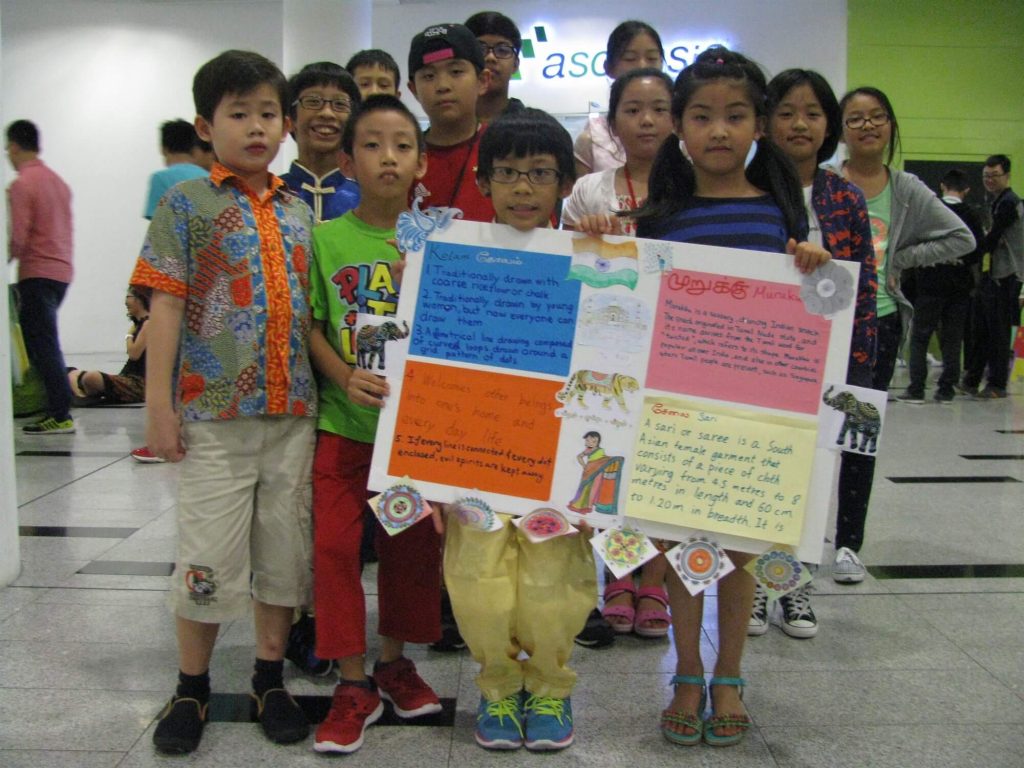 Kolam கோலம்
1. Traditionally drawn with
coarse rice flour or chalk
2. Traditionally drawn by young
women, but now everyone can
draw them
3. A geometrical line drawing composed
of curved loops drawn around a
grid pattern of dots
4. Welcomes other beings
into one's home and
every day life
5. If every line is connected & every dot
enclosed, evil spirits are kept away
முறுக்கு
Murukku is a savoury, crunchy Indian snack
The snack originated in Tamil Nadu state and
its name derives from the Tamil word for
"twisted", which refers to its shape. Murukku is
popular all over India, and also in other countries
where Tamil people are present, such as Singapore
சேலை Sari
A sari or saree is a South
Asian female garment that
consists of a piece of cloth
varying from 4.5 metres to 8
metres in length and 60 cm
to 1.20 m in breadth. It is